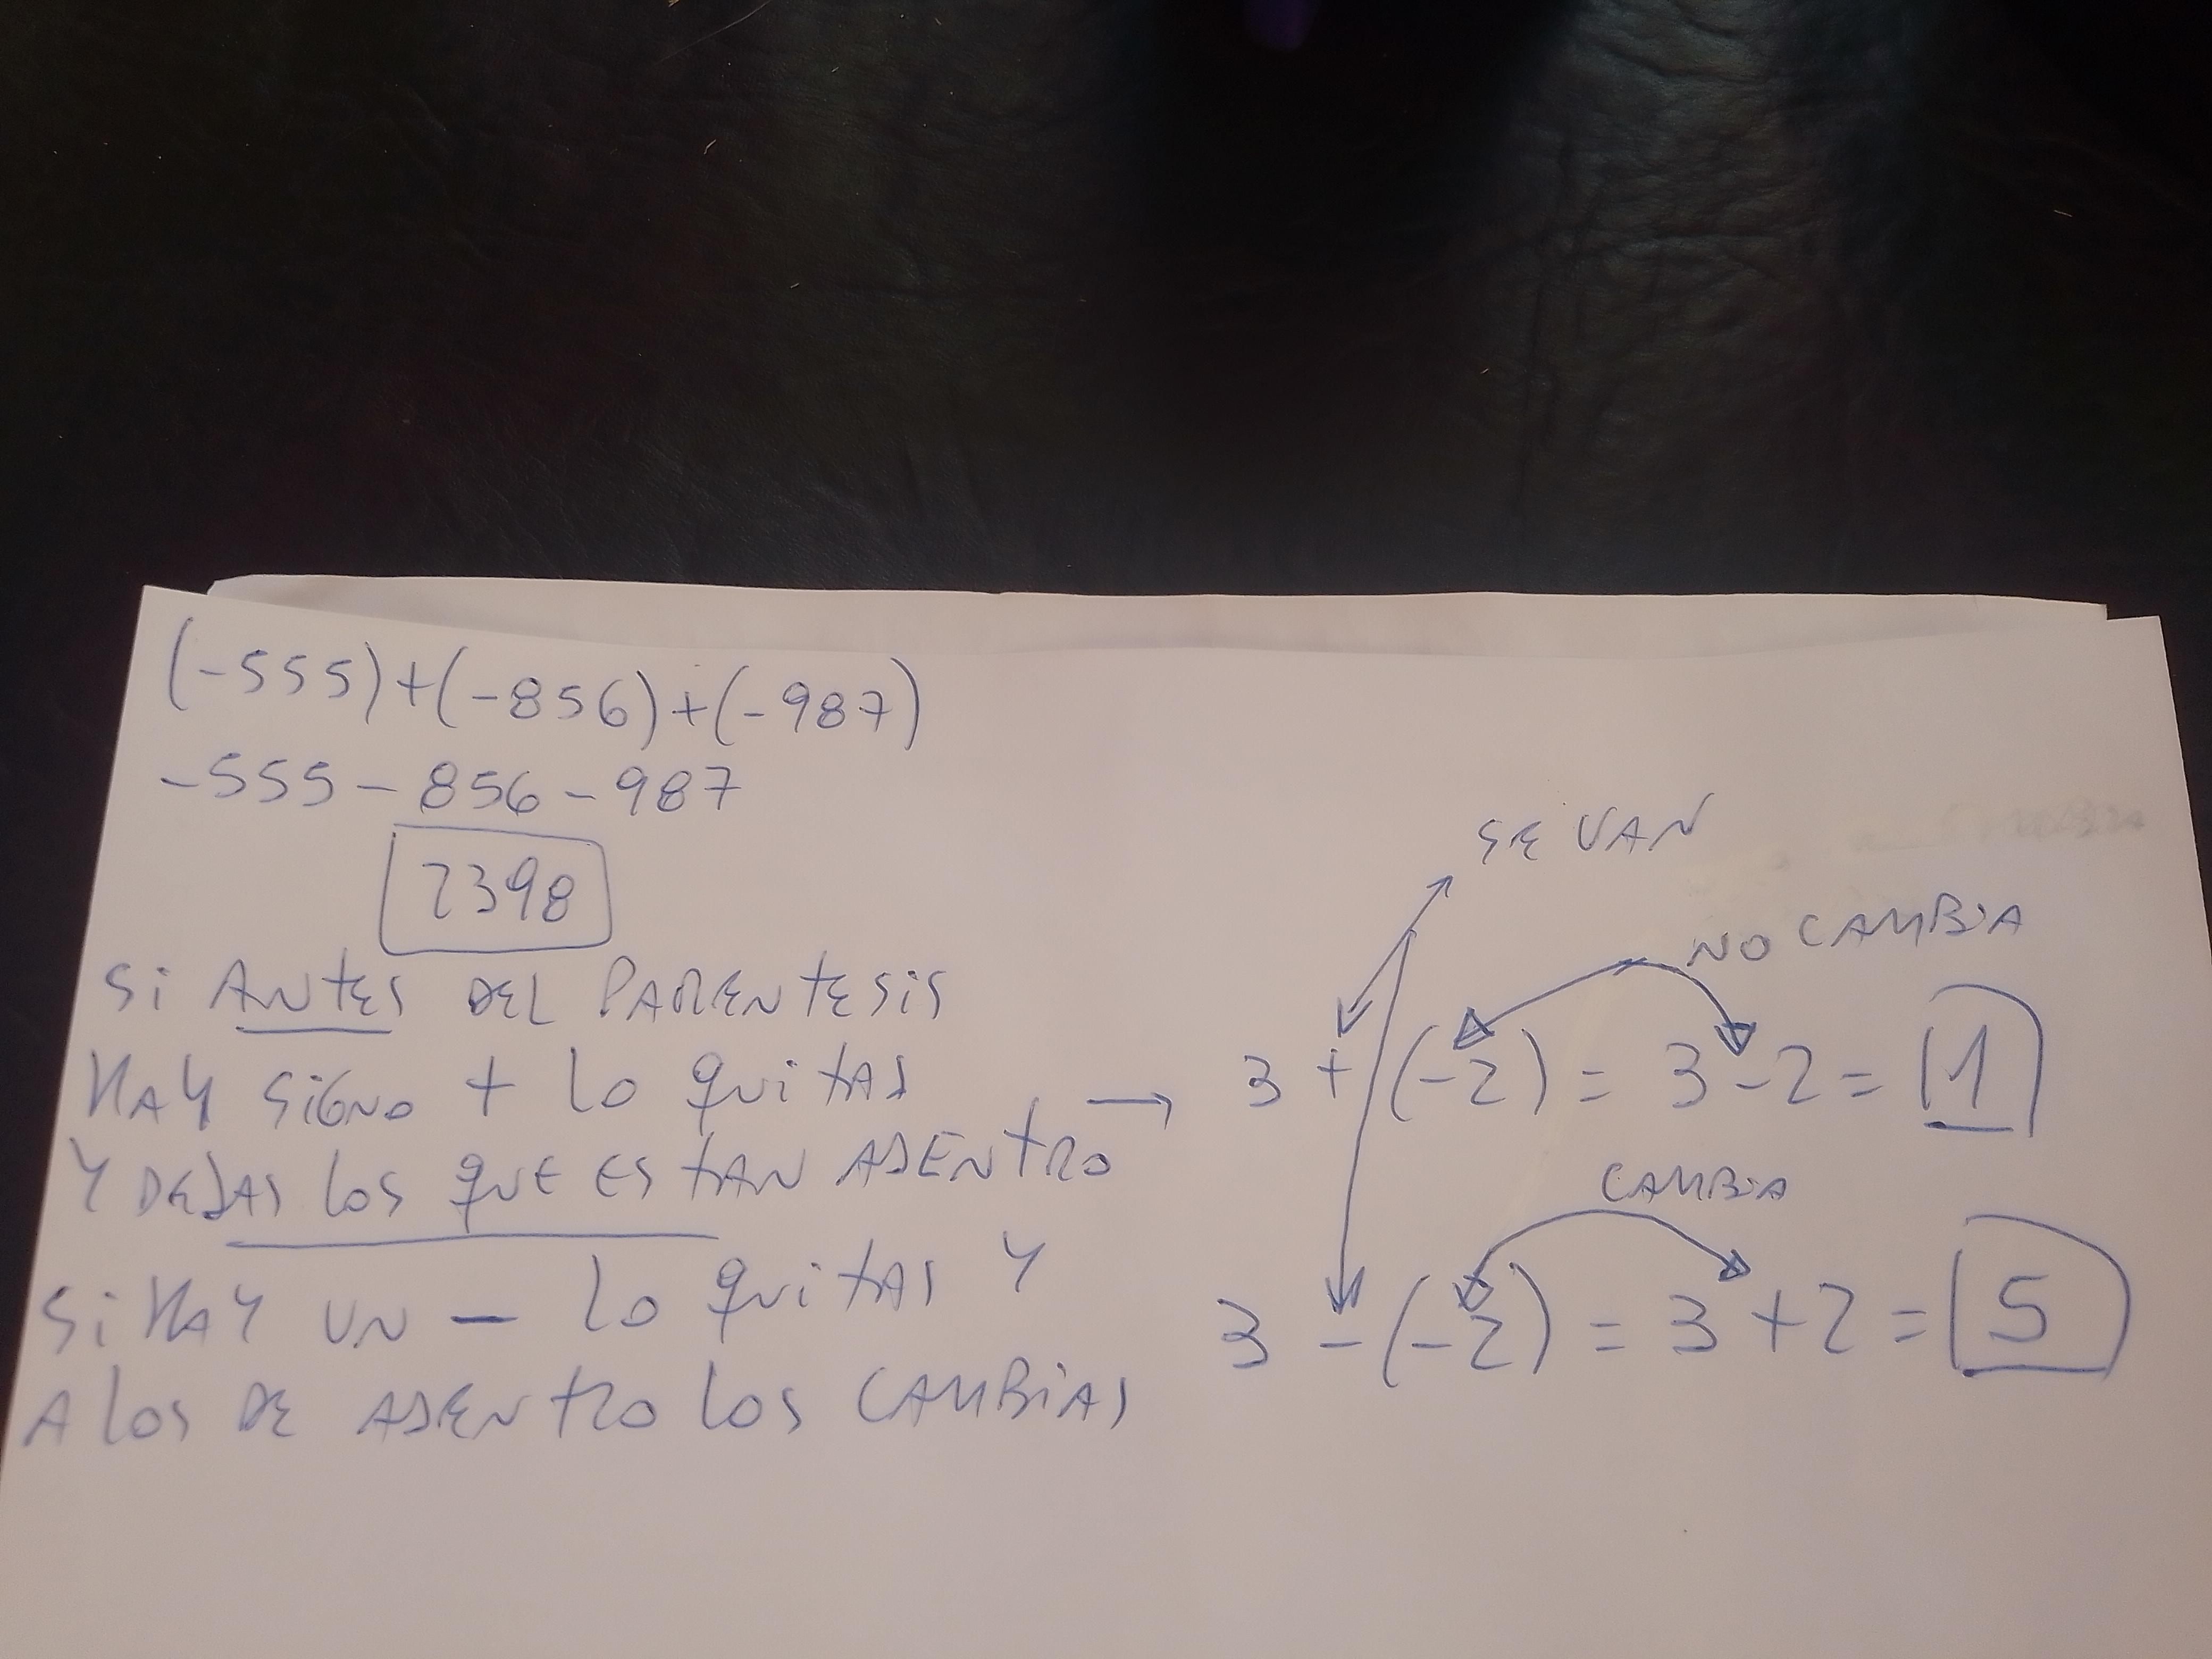 (-555)+(-856)+(-987)
-555-856-987
2398
Si ANTES DEL PARENTESIS
HAY SIGNO + LO QUITAS
Y DEJAS LOS QUE ESTAN ADENTRO
SI HAY UN - LO QUITAS Y
A LOS DE ADENTRO LOS CAMBIAS
SE VAN
NO CAMBIA
→ 3 + (-2) = 3 - 2 = 1
CAMBIA
3 - (-2) = 3 + 2 = 5